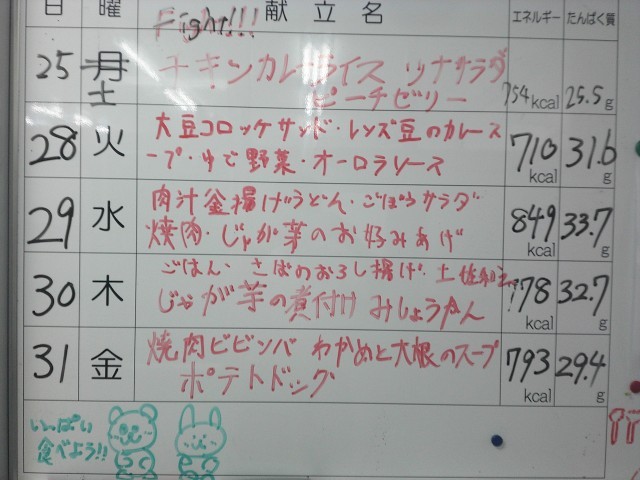 日 曜 献立名 エネルギー たんぱく質
Fight!!!
25 月 土 チキンカレーライス ツナサラダ
ピーチゼリー 754kcal 25.5g
28 火 大豆コロッケサンド・レンズ豆のカレース
ープ・ゆで野菜・オーロラソース 710kcal 31.6g
29 水 肉汁釜揚げうどん・ごぼうサラダ
焼肉・じゃが芋のお好みあげ 849kcal 33.7g
30 木 ごはん・さばのおろし揚げ・土佐和え
じゃが芋の煮付け みしょうかん 778kcal 32.7g
31 金 焼肉ビビンバ わかめと大根のスープ
ポテトドッグ 793kcal 29.4g
いっぱい
食べよう!!